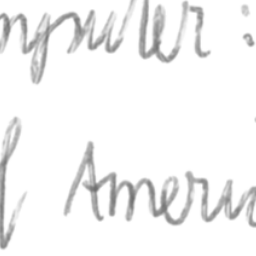 mputer:
Ameri